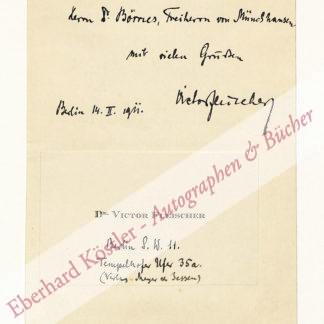 Herrn Dr. Börries, Freiherrn von Münchhausen
mit vielen Grüßen
Berlin 14. II. 1911.
Victor Fleischer
Dr. Victor Fleischer
Berlin S. W. 11.
Tempelhofer Ufer 35a.
(Verlag Meyer & Jessen)
Eberhard Köstler - Autographen & Bücher